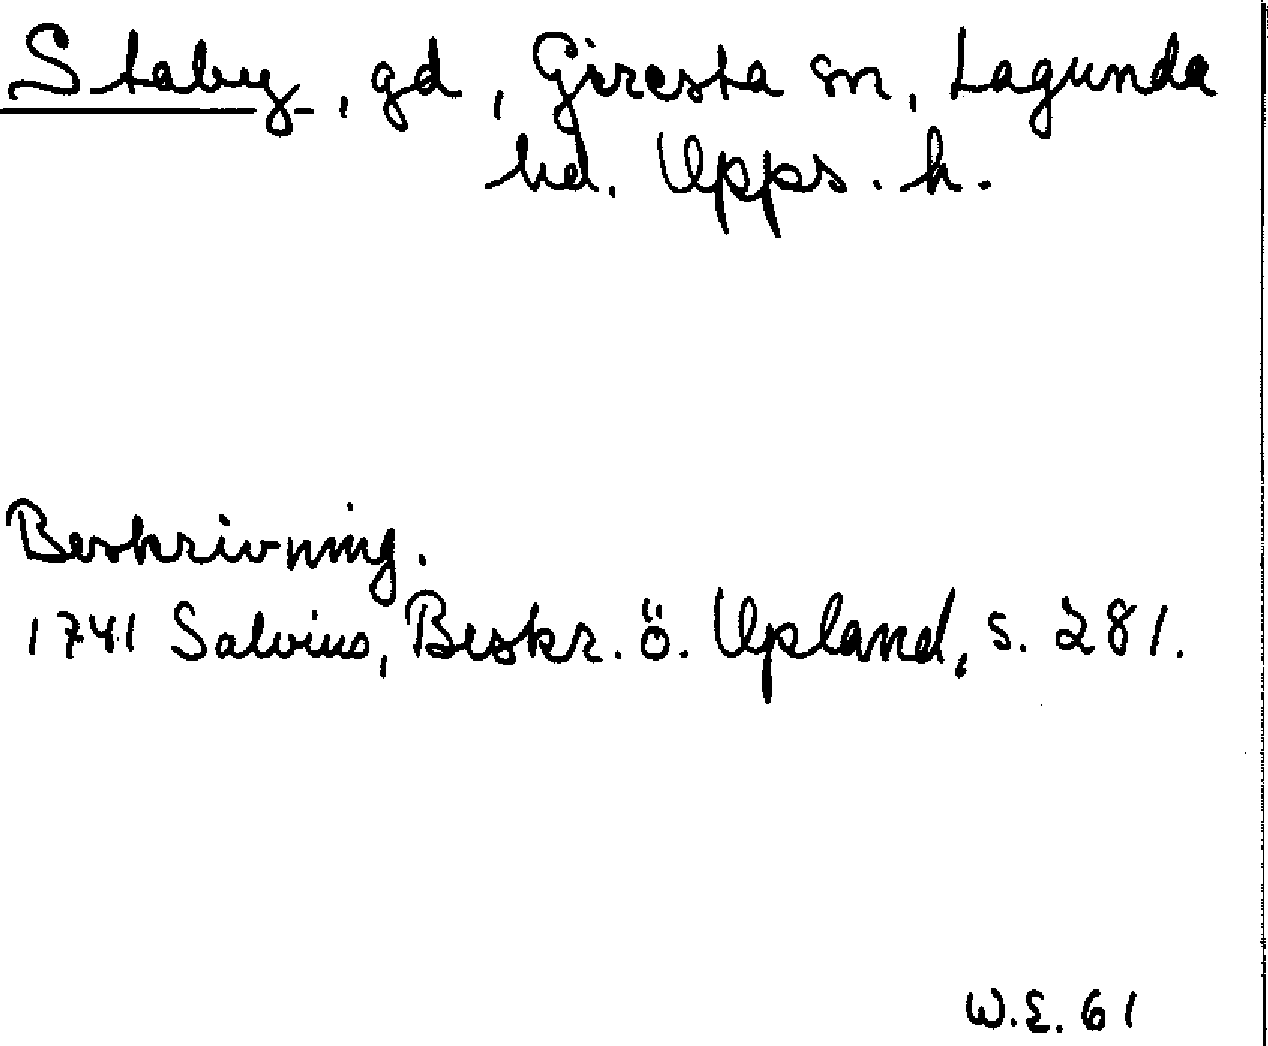 Staby, gd, Giresta sn, Lagunda
hd. Upps. h.
Beskrivning.
1741 Salvius, Beskr. ö. Upland, s. 281.
W.E. 61